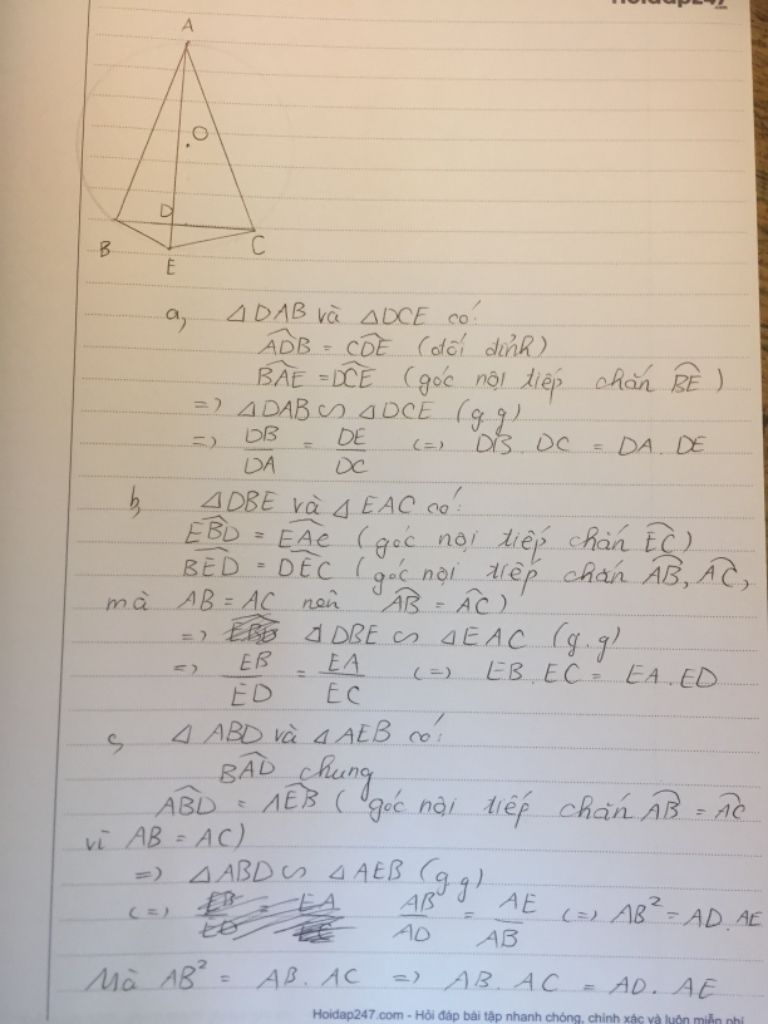 Hoidap247
A
O
D
B
C
E
a, △DAB và △DCE có:
ADB = CDE (đối đỉnh)
BAE = DCE (góc nội tiếp chắn BE)
=> △DAB ∽ △DCE (g g)
=> DB/DA = DE/DC (=) DB . DC = DA . DE
b, △DBE và △EAC có:
EBD = EAC (góc nội tiếp chắn EC)
BED = DEC (góc nội tiếp chắn AB, AC,
mà AB = AC nên AB = AC)
=> △DBE ∽ △EAC (g.g)
=> EB/ED = EA/EC (=) EB . EC = EA . ED
c, △ABD và △AEB có:
BAD chung
ABD = AEB (góc nội tiếp chắn AB = AC
vì AB = AC)
=> △ABD ∽ △AEB (g g)
(=) AB/AD = AE/AB (=) AB² = AD . AE
Mà AB² = AB . AC => AB . AC = AD . AE
Hoidap247.com - Hỏi đáp bài tập nhanh chóng, chính xác và luôn miễn phí